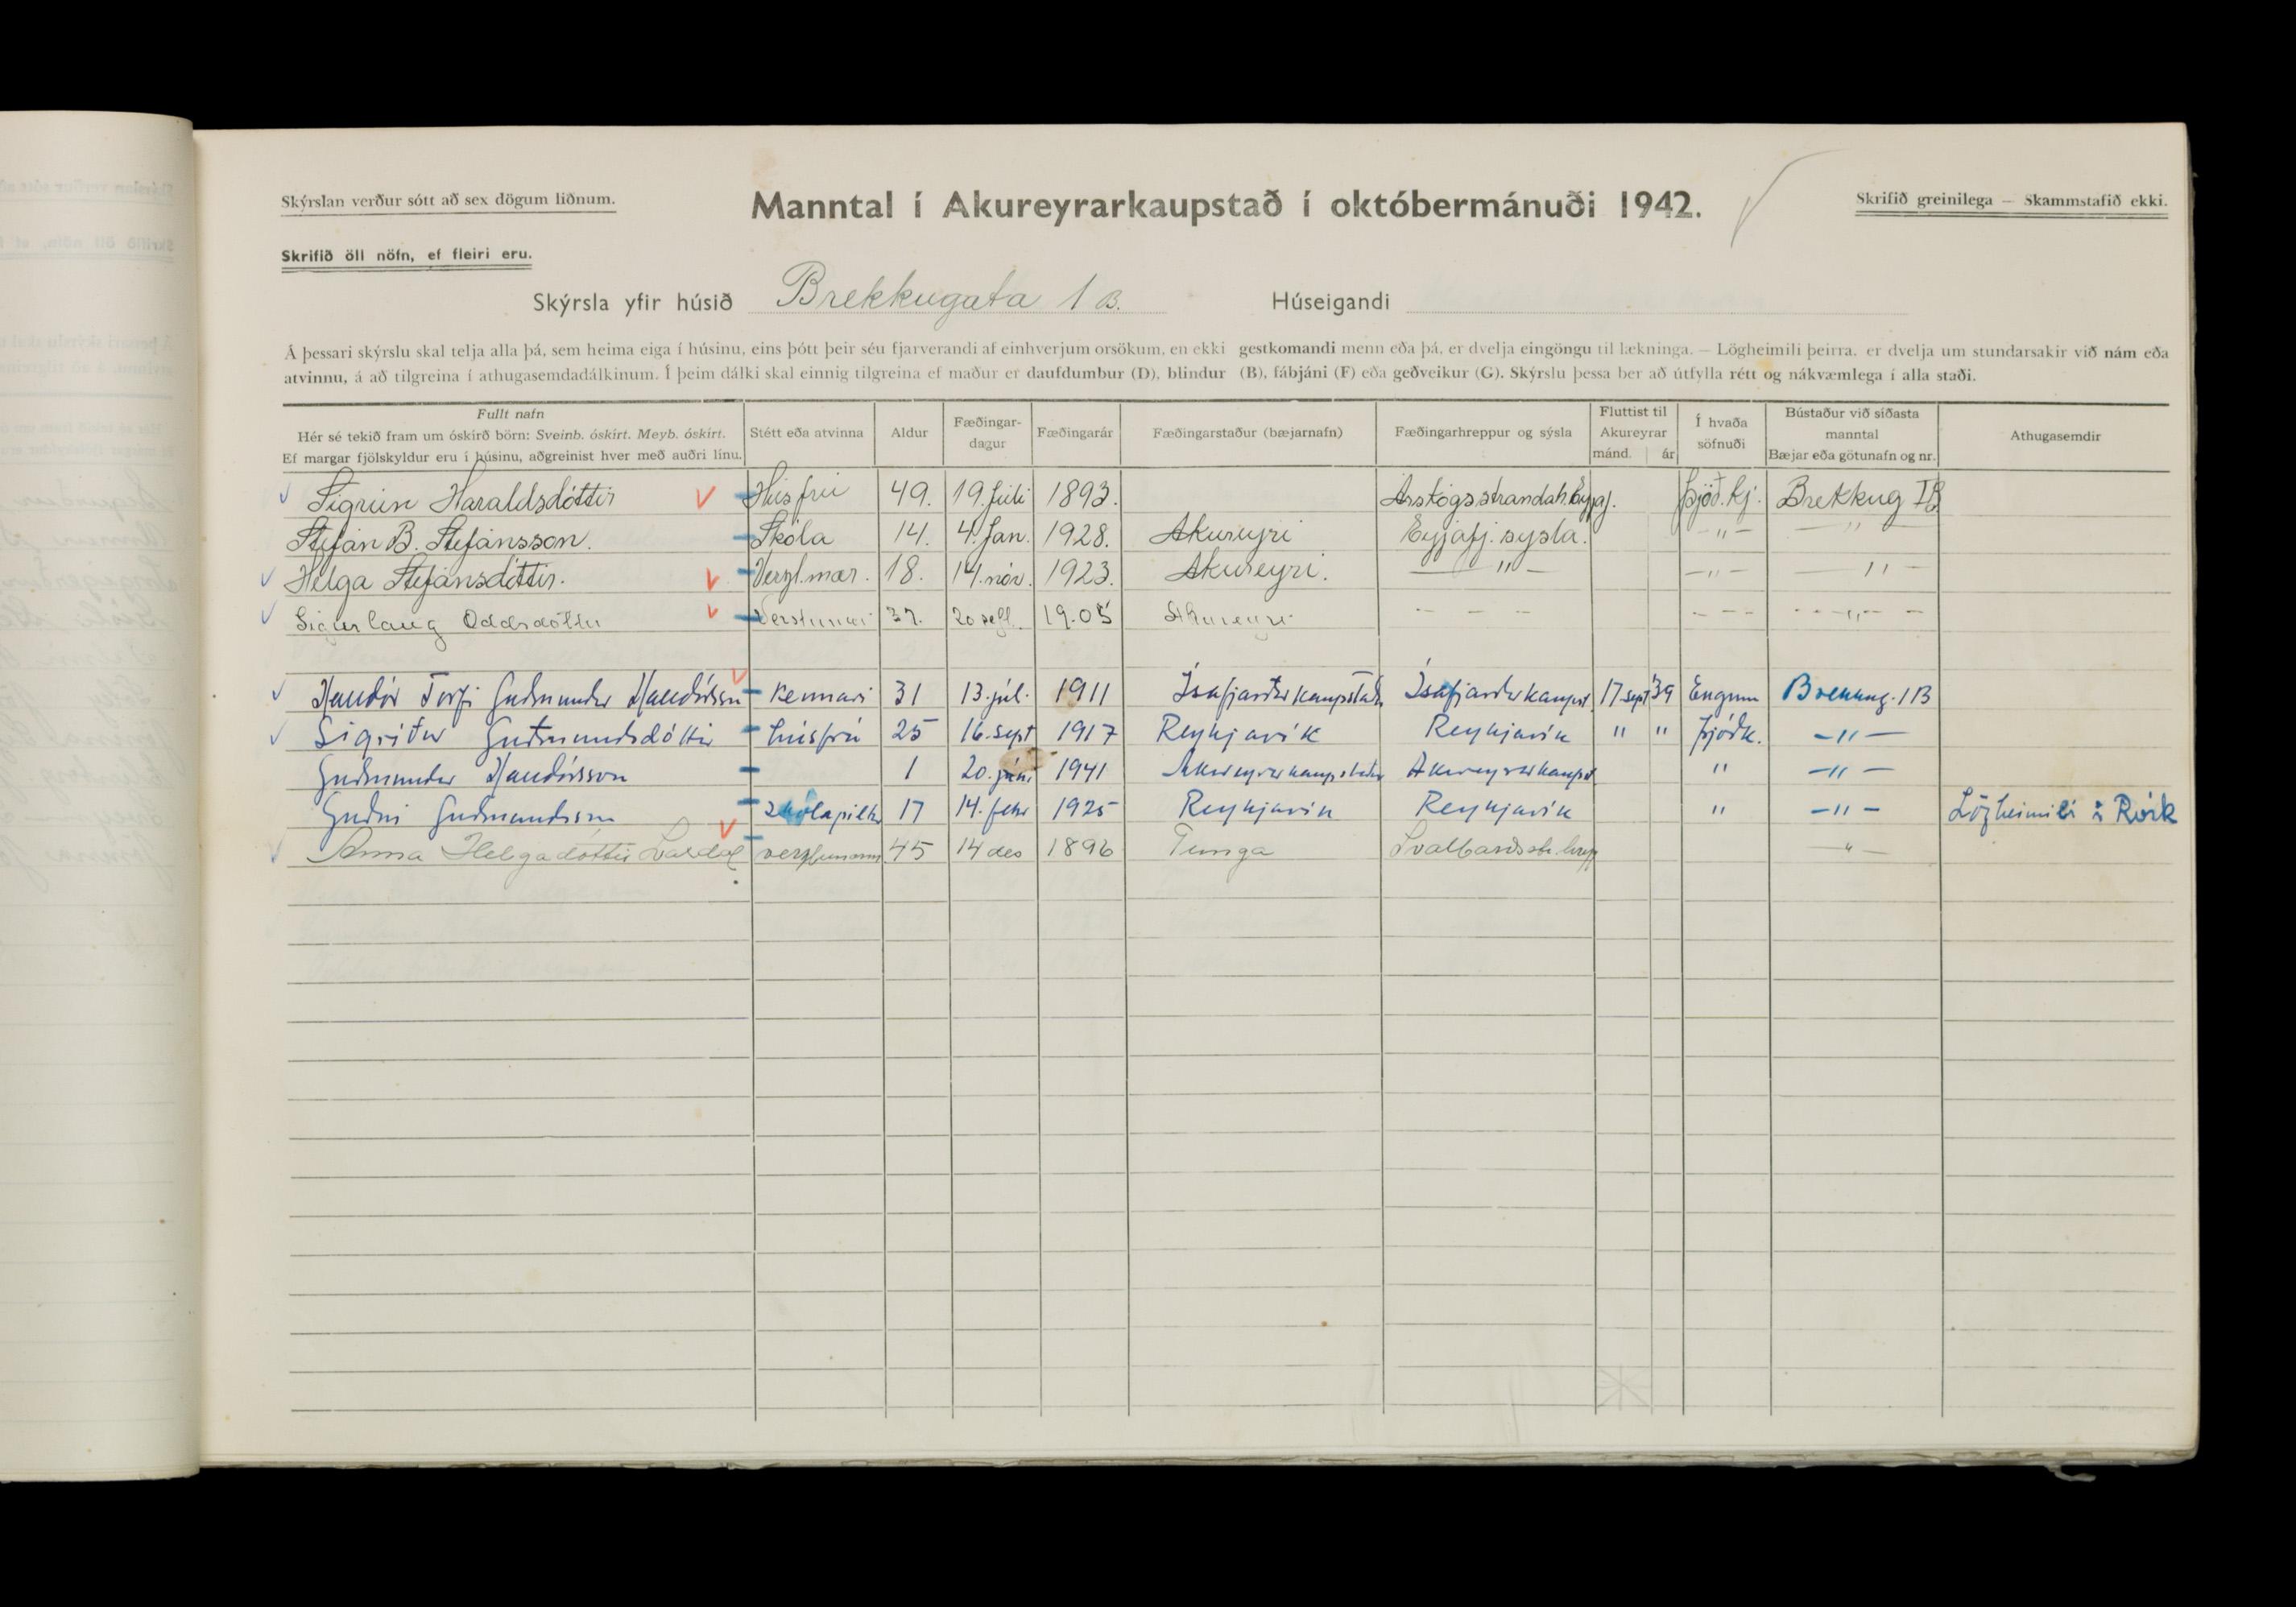 Skýrslan verður sótt að sex dögum liðnum.
Manntal í Akureyrarkaupstað í októbermánuði 1942.
Skrifið greinilega — Skammstafið ekki.
Skrifið öll nöfn, ef fleiri eru.
Skýrsla yfir húsið Brekkugata 1 B. Húseigandi
Á þessari skýrslu skal telja alla þá, sem heima eiga í húsinu, eins þótt þeir séu fjarverandi af einhverjum orsökum, en ekki gestkomandi menn eða þá, er dvelja eingöngu til lækninga. — Lögheimili þeirra, er dvelja um stundarsakir við nám eða
atvinnu, á að tilgreina í athugasemdadálkinum. Í þeim dálki skal einnig tilgreina ef maður er daufdumbur (D), blindur (B), fábjáni (F) eða geðveikur (G). Skýrslu þessa ber að útfylla rétt og nákvæmlega í alla staði.
Fullt nafn
Hér sé tekið fram um óskírð börn: Sveinb. óskírt. Meyb. óskírt.
Ef margar fjölskyldur eru í húsinu, aðgreinist hver með auðri línu.
Stétt eða atvinna
Aldur
Fæðingar-
dagur
Fæðingarár
Fæðingarstaður (bæjarnafn)
Fæðingarhreppur og sýsla
Fluttist til
Akureyrar
mánd. ár
Í hvaða
söfnuði
Bústaður við síðasta
manntal
Bæjar eða götunafn og nr.
Athugasemdir
Sigrún Haraldsdóttir Húsfrú 49. 19. Júlí 1893. Árskógsstrandah. Eyjafj. Þjóð.kj. Brekkug 1B
Stefán B. Stefánsson. Skóla 14. 4. Jan. 1928. Akureyri Eyjafj. sysla. — " — — " —
Helga Stefánsdóttir. Verzl.mær. 18. 14. nóv. 1923. Akureyri. — " — — " — — " —
Sigurlaug Oddsdóttir 37. 20 sept. 19.05 Akureyri - - - - - - - - " - -
Halldór Torfi Guðmundur Halldórsson Kennari 31 13. júl. 1911 Ísafjarðarkaupstað Ísafjarðarkaupst. 17. sept '39 Engum Brekkug. 1B
Sigríður Guðmundsdóttir húsfrú 25 16. sept 1917 Reykjavík Reykjavík " " Þjóðk. — " —
Guðmundur Halldórsson 1 20. júní 1941 Akureyrarkaupstaður Akureyrarkaupst. " — " —
Guðni Guðmundsson skólapiltur 17 14. febr 1925 Reykjavík Reykjavík " — " — Lögheimili í Rvík
Anna Helgadóttir verzlunarm 45 14 des 1896 Tunga Svalbarðsstr. hrepp — " —